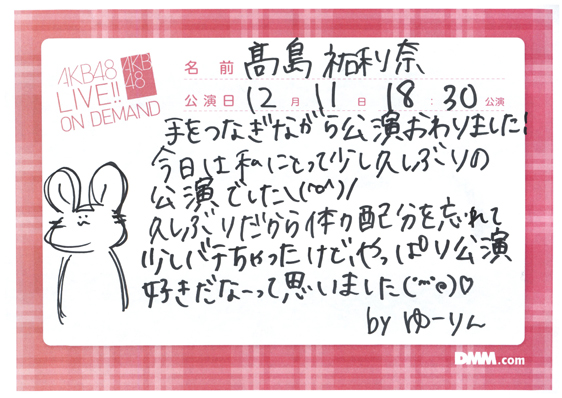 AKB48
LIVE!!
ON DEMAND
AKB
48
名前 髙島 祐利奈
公演日 12月 11日 18:30 公演
手をつなぎながら公演おわりました!
今日は私にとって少し久しぶりの
公演でした\(^o^)/
久しぶりだから体力配分を忘れて
少しバテちゃったけど、やっぱり公演
好きだなーって思いました(^^)♡
by ゆーりん
DMM.com